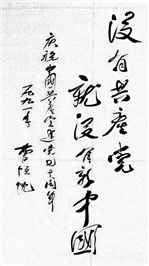 没有共产党
就没有新中国
庆祝中国共产党建党七十周年
一九九一年